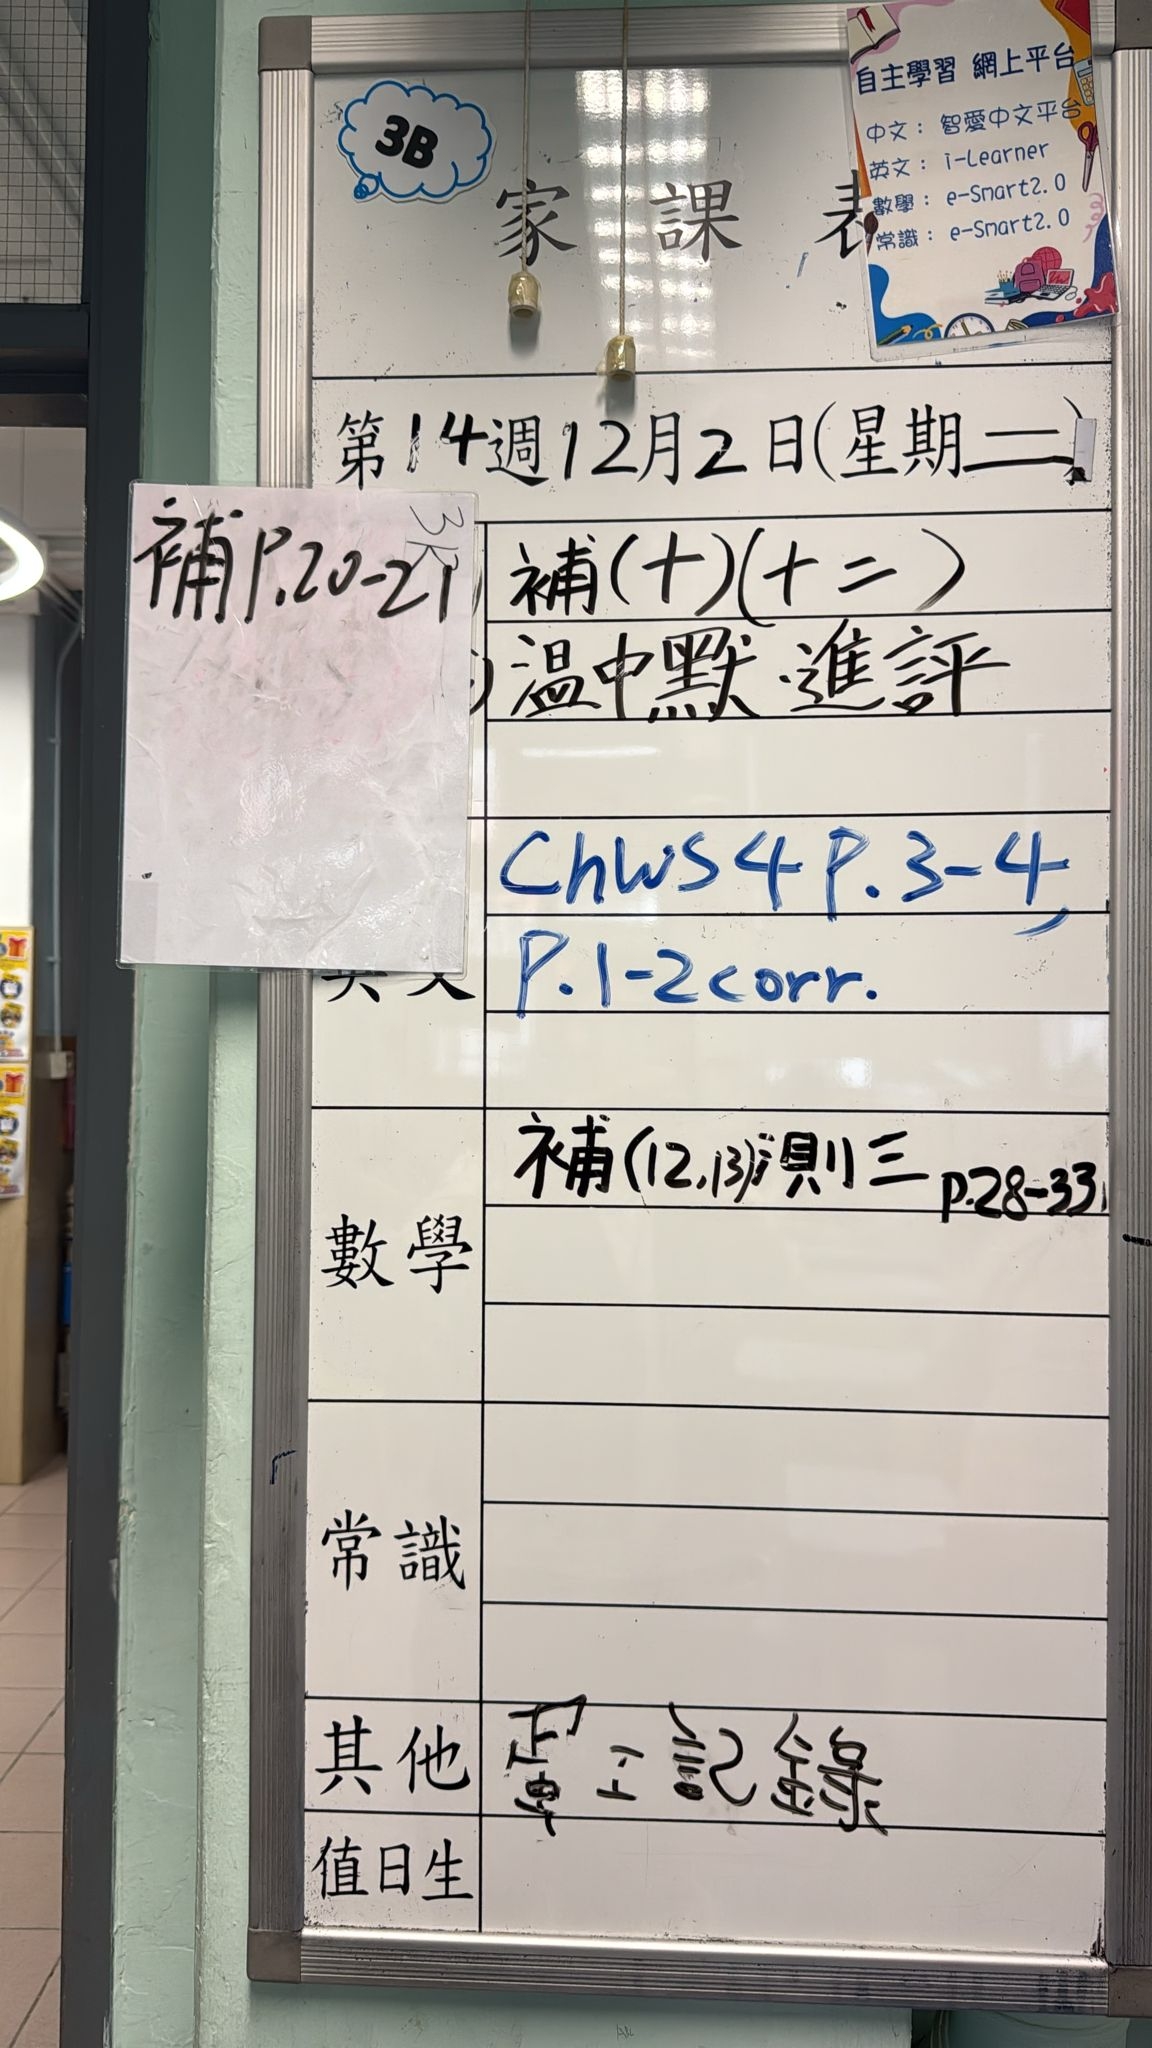 3B
家課表
自主學習 網上平台
中文：智愛中文平台
英文：i-Learner
數學：e-Smart2.0
常識：e-Smart2.0
第14週12月2日(星期二)
補P.20-21
補(十)(十二)
溫中默 進評
英文
ChWS 4 P.3-4,
P.1-2 corr.
數學
補(12,13)測三 P.28-33
常識
其他
記錄
值日生